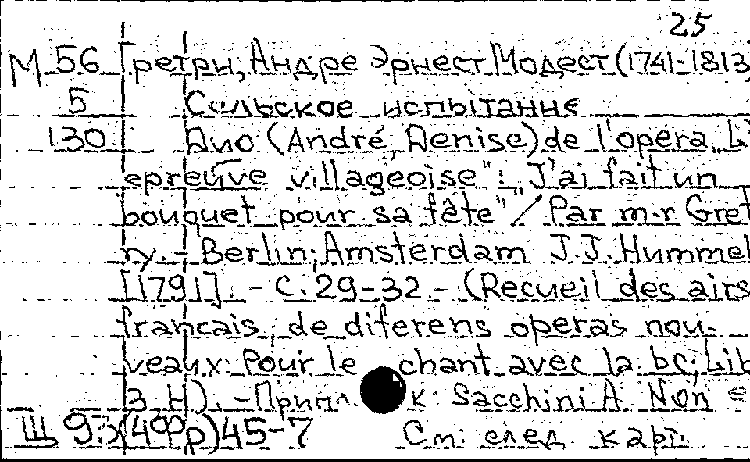 25
М 56 Гретри, Андре Эрнест Модест (1741-1813
5 Сельское испытание
130 Duo (André, Denise) de l'opera "L'
epreuve villageoise": "J'ai fait un
bouquet pour sa fête" / Par m-r Gret
ry. - Berlin; Amsterdam J.J. Hummel
[1791]. - С. 29-32 - (Recueil des airs
francais, de diferens operas nou-
veaux. Pour le chant avec la bc; Lib
3 H). - Припл. к: Sacchini A. Non
Щ 93(4Фр)45-7 См. след. карт.